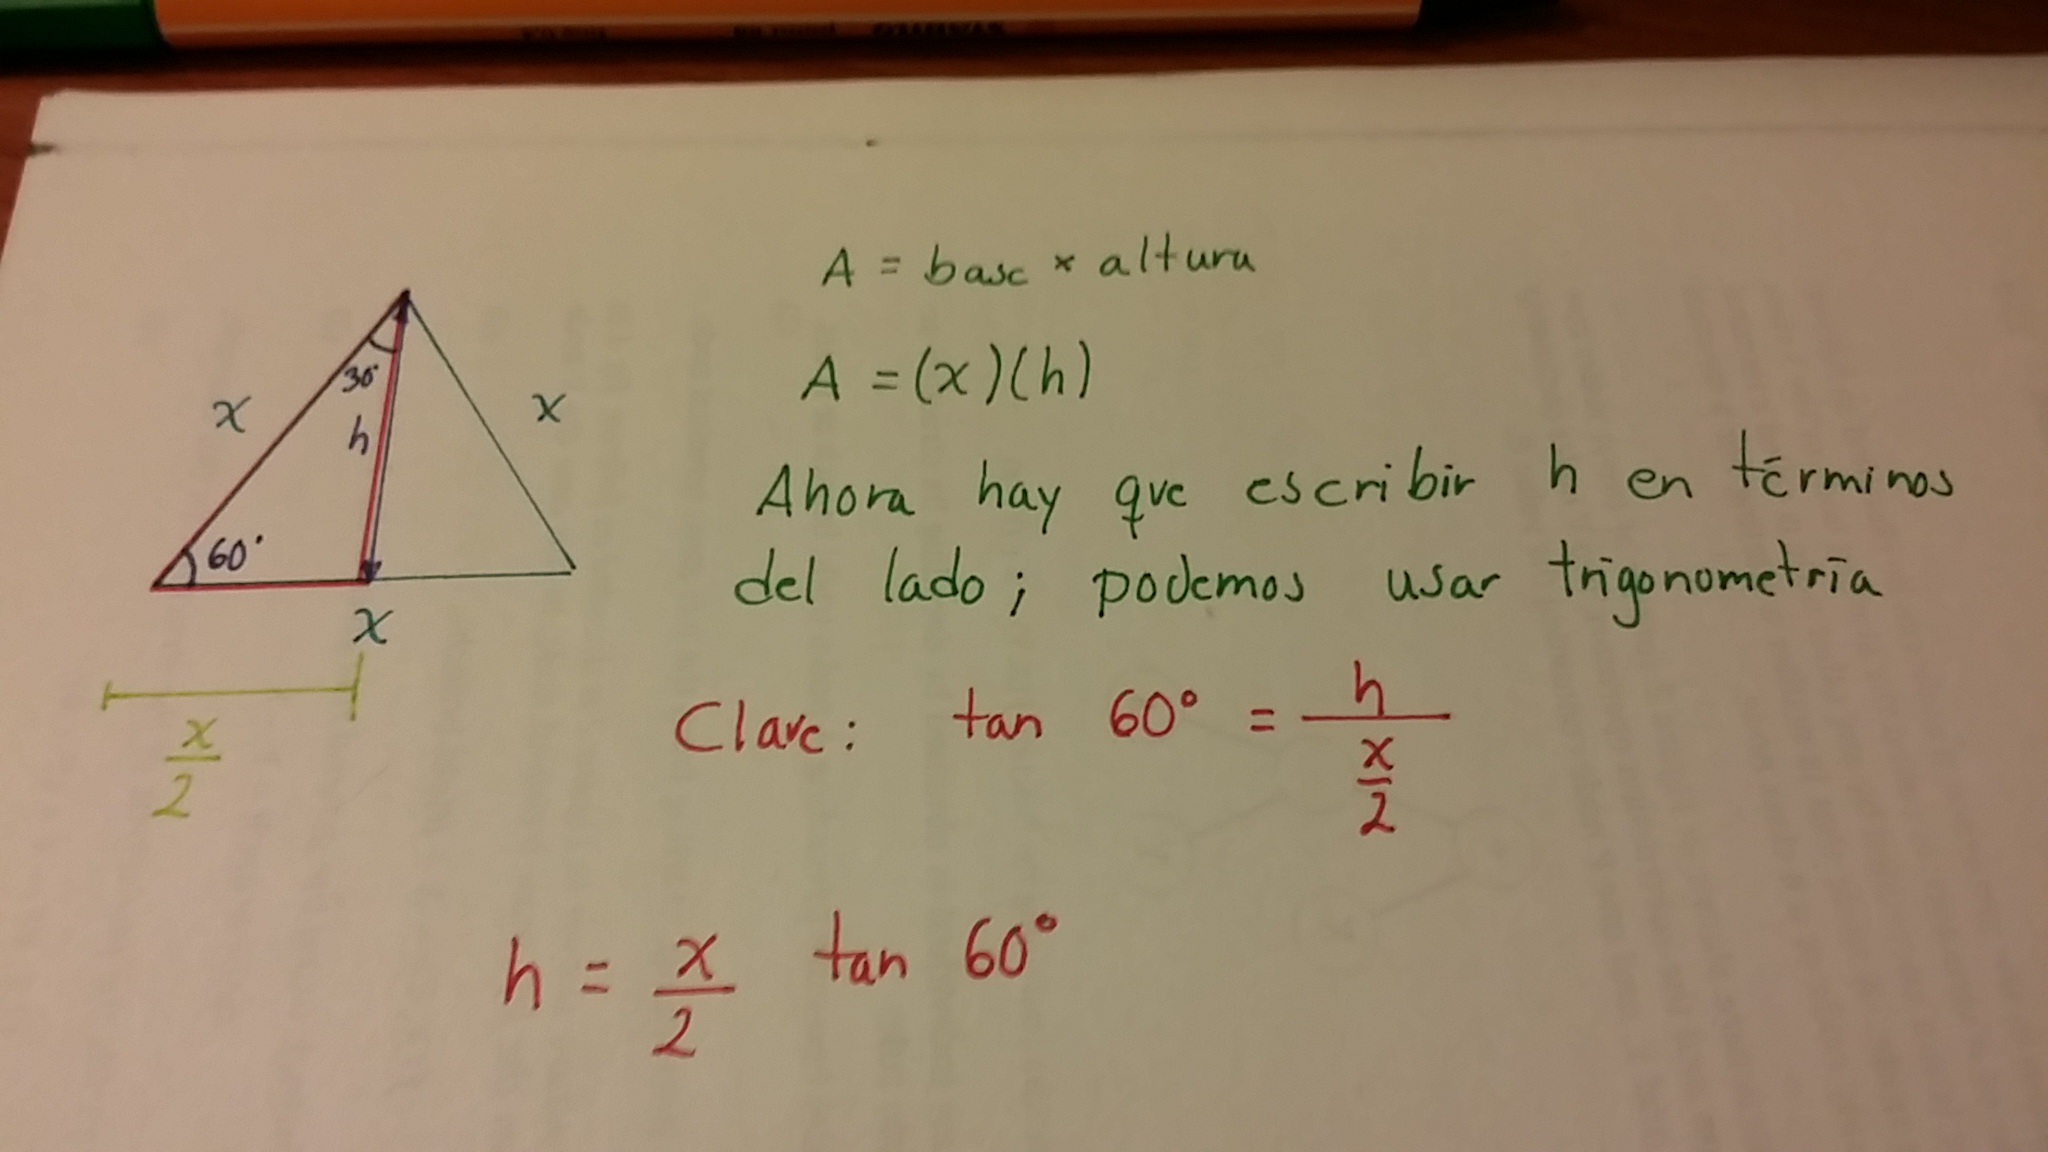 A = base × altura
A = (x)(h)
Ahora hay que escribir h en términos
del lado; podemos usar trigonometría
x
30°
h
x
60°
x
x/2
Clave: tan 60° = h/(x/2)
h = x/2 tan 60°